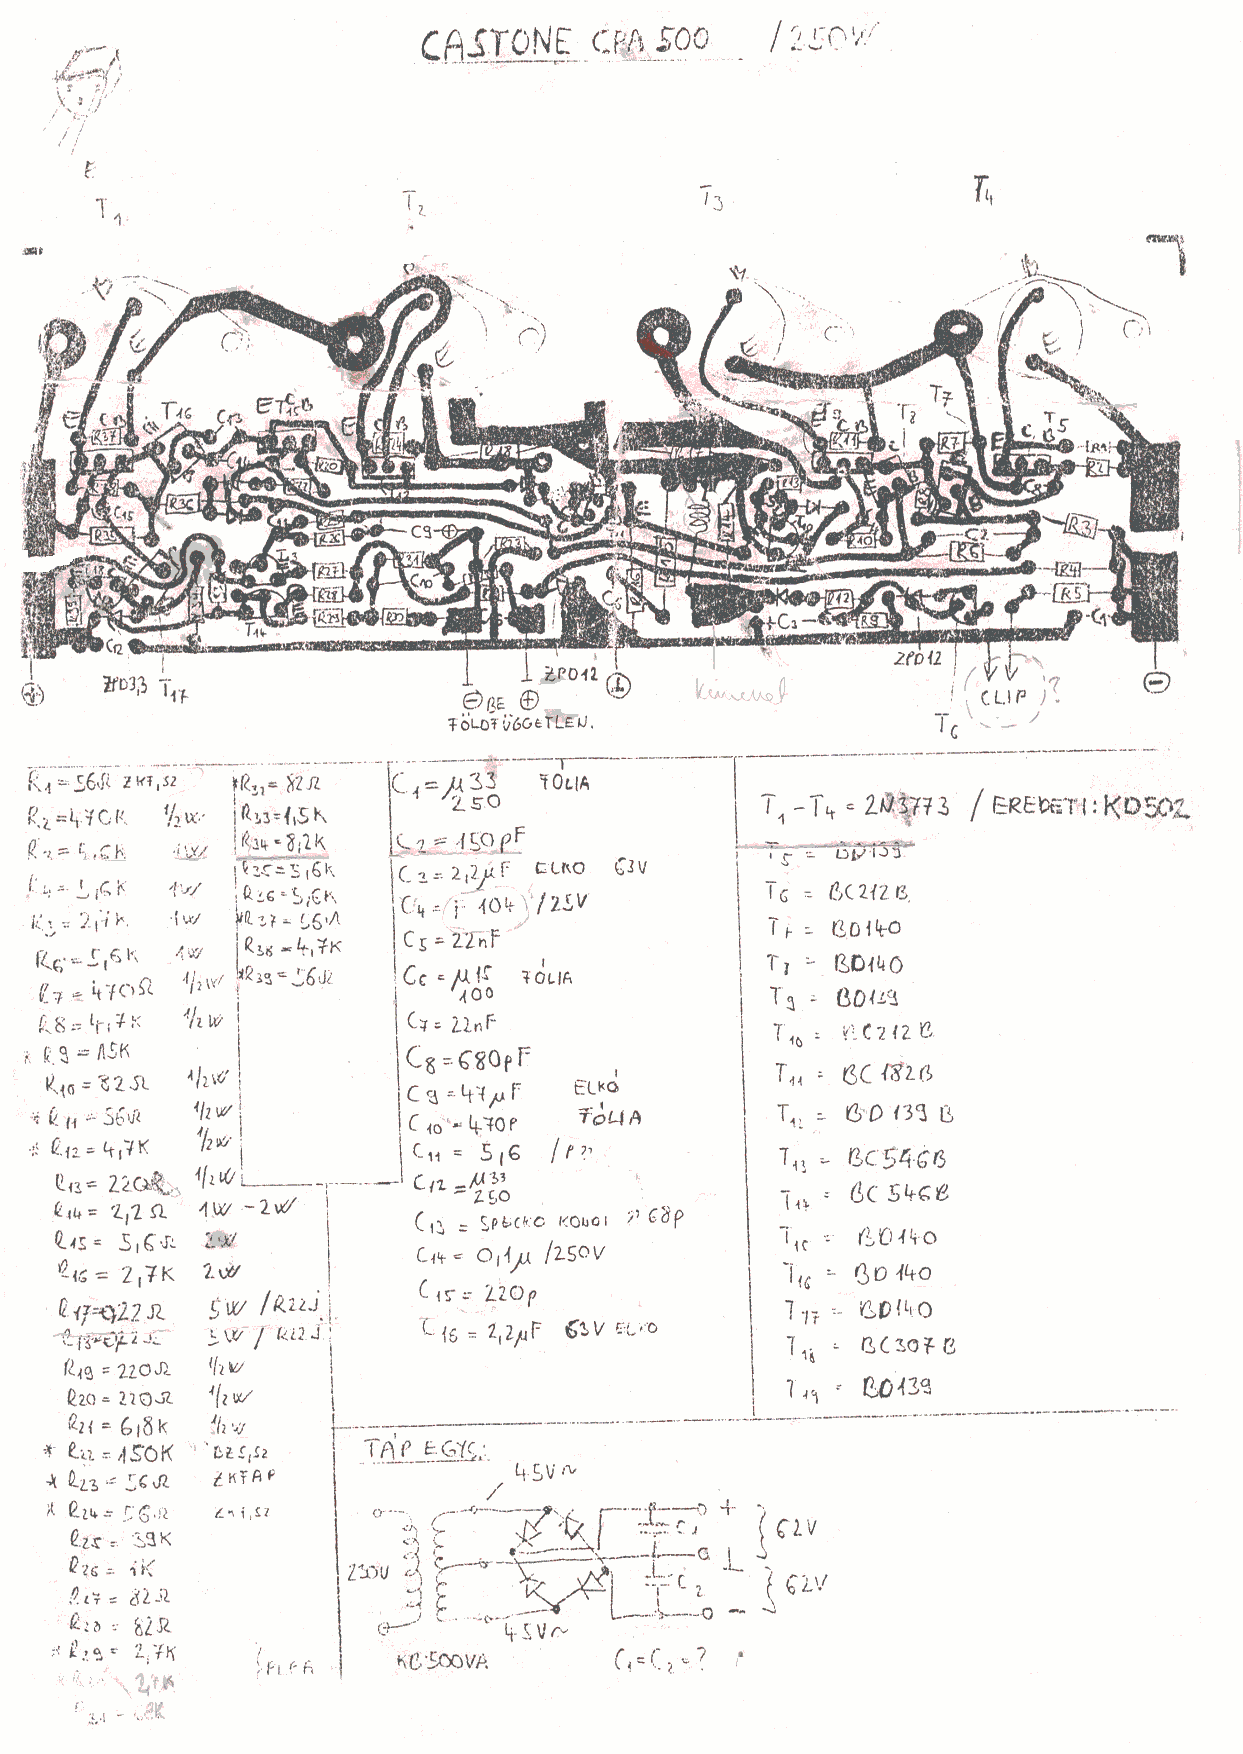 CASTONE CPA 500 /250W
E
T1 T2 T3 T4
B B B
E E E E
T16 C13 ET15B T9 T8 T7 T5
R37 R24 R18 R11 R7 R1
R20 R2
R36 R22 R13
C15 R26 C9 R10 C2 R3
R35 R6
R27 R31 R23 R4
R28 C10 R12 R5
R29 T14 C3 R9 C1
C12
ZPD3,3 T17 ZPD12 ZPD12
BE CLIP ?
FÖLDFÜGGETLEN. T6
R1=56Ω ZKF,SZ
R2=470K 1/2W
R3=5,6K 1W
R4=5,6K 1W
R5=2,7K 1W
R6=5,6K 1W
R7=470Ω 1/2W
R8=4,7K 1/2W
* R9=15K
R10=82Ω 1/2W
* R11=56Ω 1/2W
* R12=4,7K 1/2W
R13=220Ω 1/2W
R14=2,2Ω 1W-2W
R15=5,6Ω 2W
R16=2,7K 2W
R17=0,22Ω 5W /R22J
R18=0,22Ω 5W /R22J
R19=220Ω 1/2W
R20=220Ω 1/2W
R21=6,8K 1/2W
* R22=150K BZS,SZ
* R23=56Ω ZKFAP
* R24=56Ω
R25=39K
R26=1K
R27=82Ω
R28=82Ω
* R29=2,7K
2,7K
R31
*R32=82Ω
R33=1,5K
R34=8,2K
R35=5,6K
R36=5,6K
*R37=56Ω
R38=4,7K
*R39=56Ω
C1=µ33/250 FÓLIA
C2=150pF
C3=2,2µF ELKO 63V
C4=F 104 /25V
C5=22nF
C6=µ15/100 FÓLIA
C7=22nF
C8=680pF
C9=47µF ELKÓ
C10=470P FÓLIA
C11=5,6 /P??
C12=µ33/250
C13= KONDI ?? 68p
C14=0,1µ /250V
C15=220p
C16=2,2µF 63V ELKO
T1-T4=2N3773 /EREDETI:KD502
T5=BD139
T6=BC212B
T7=BD140
T8=BD140
T9=BD139
T10=BC212B
T11=BC182B
T12=BD139B
T13=BC546B
T14=BC546B
T15=BD140
T16=BD140
T17=BD140
T18=BC307B
T19=BD139
TÁP EGYS:
45V~
230V
C1
C2
+ 62V
⊥
- 62V
45V~
KB:500VA C1=C2=?